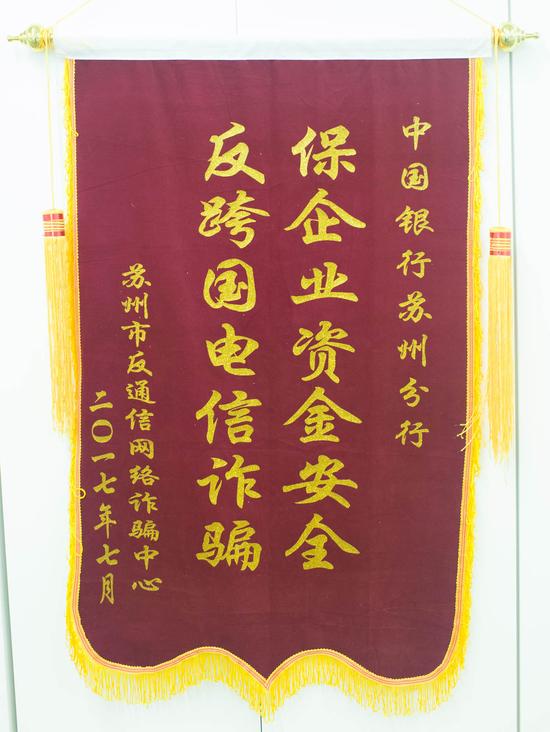 中国银行苏州分行
保企业资金安全
反跨国电信诈骗
苏州市反通信网络诈骗中心
二〇一七年七月